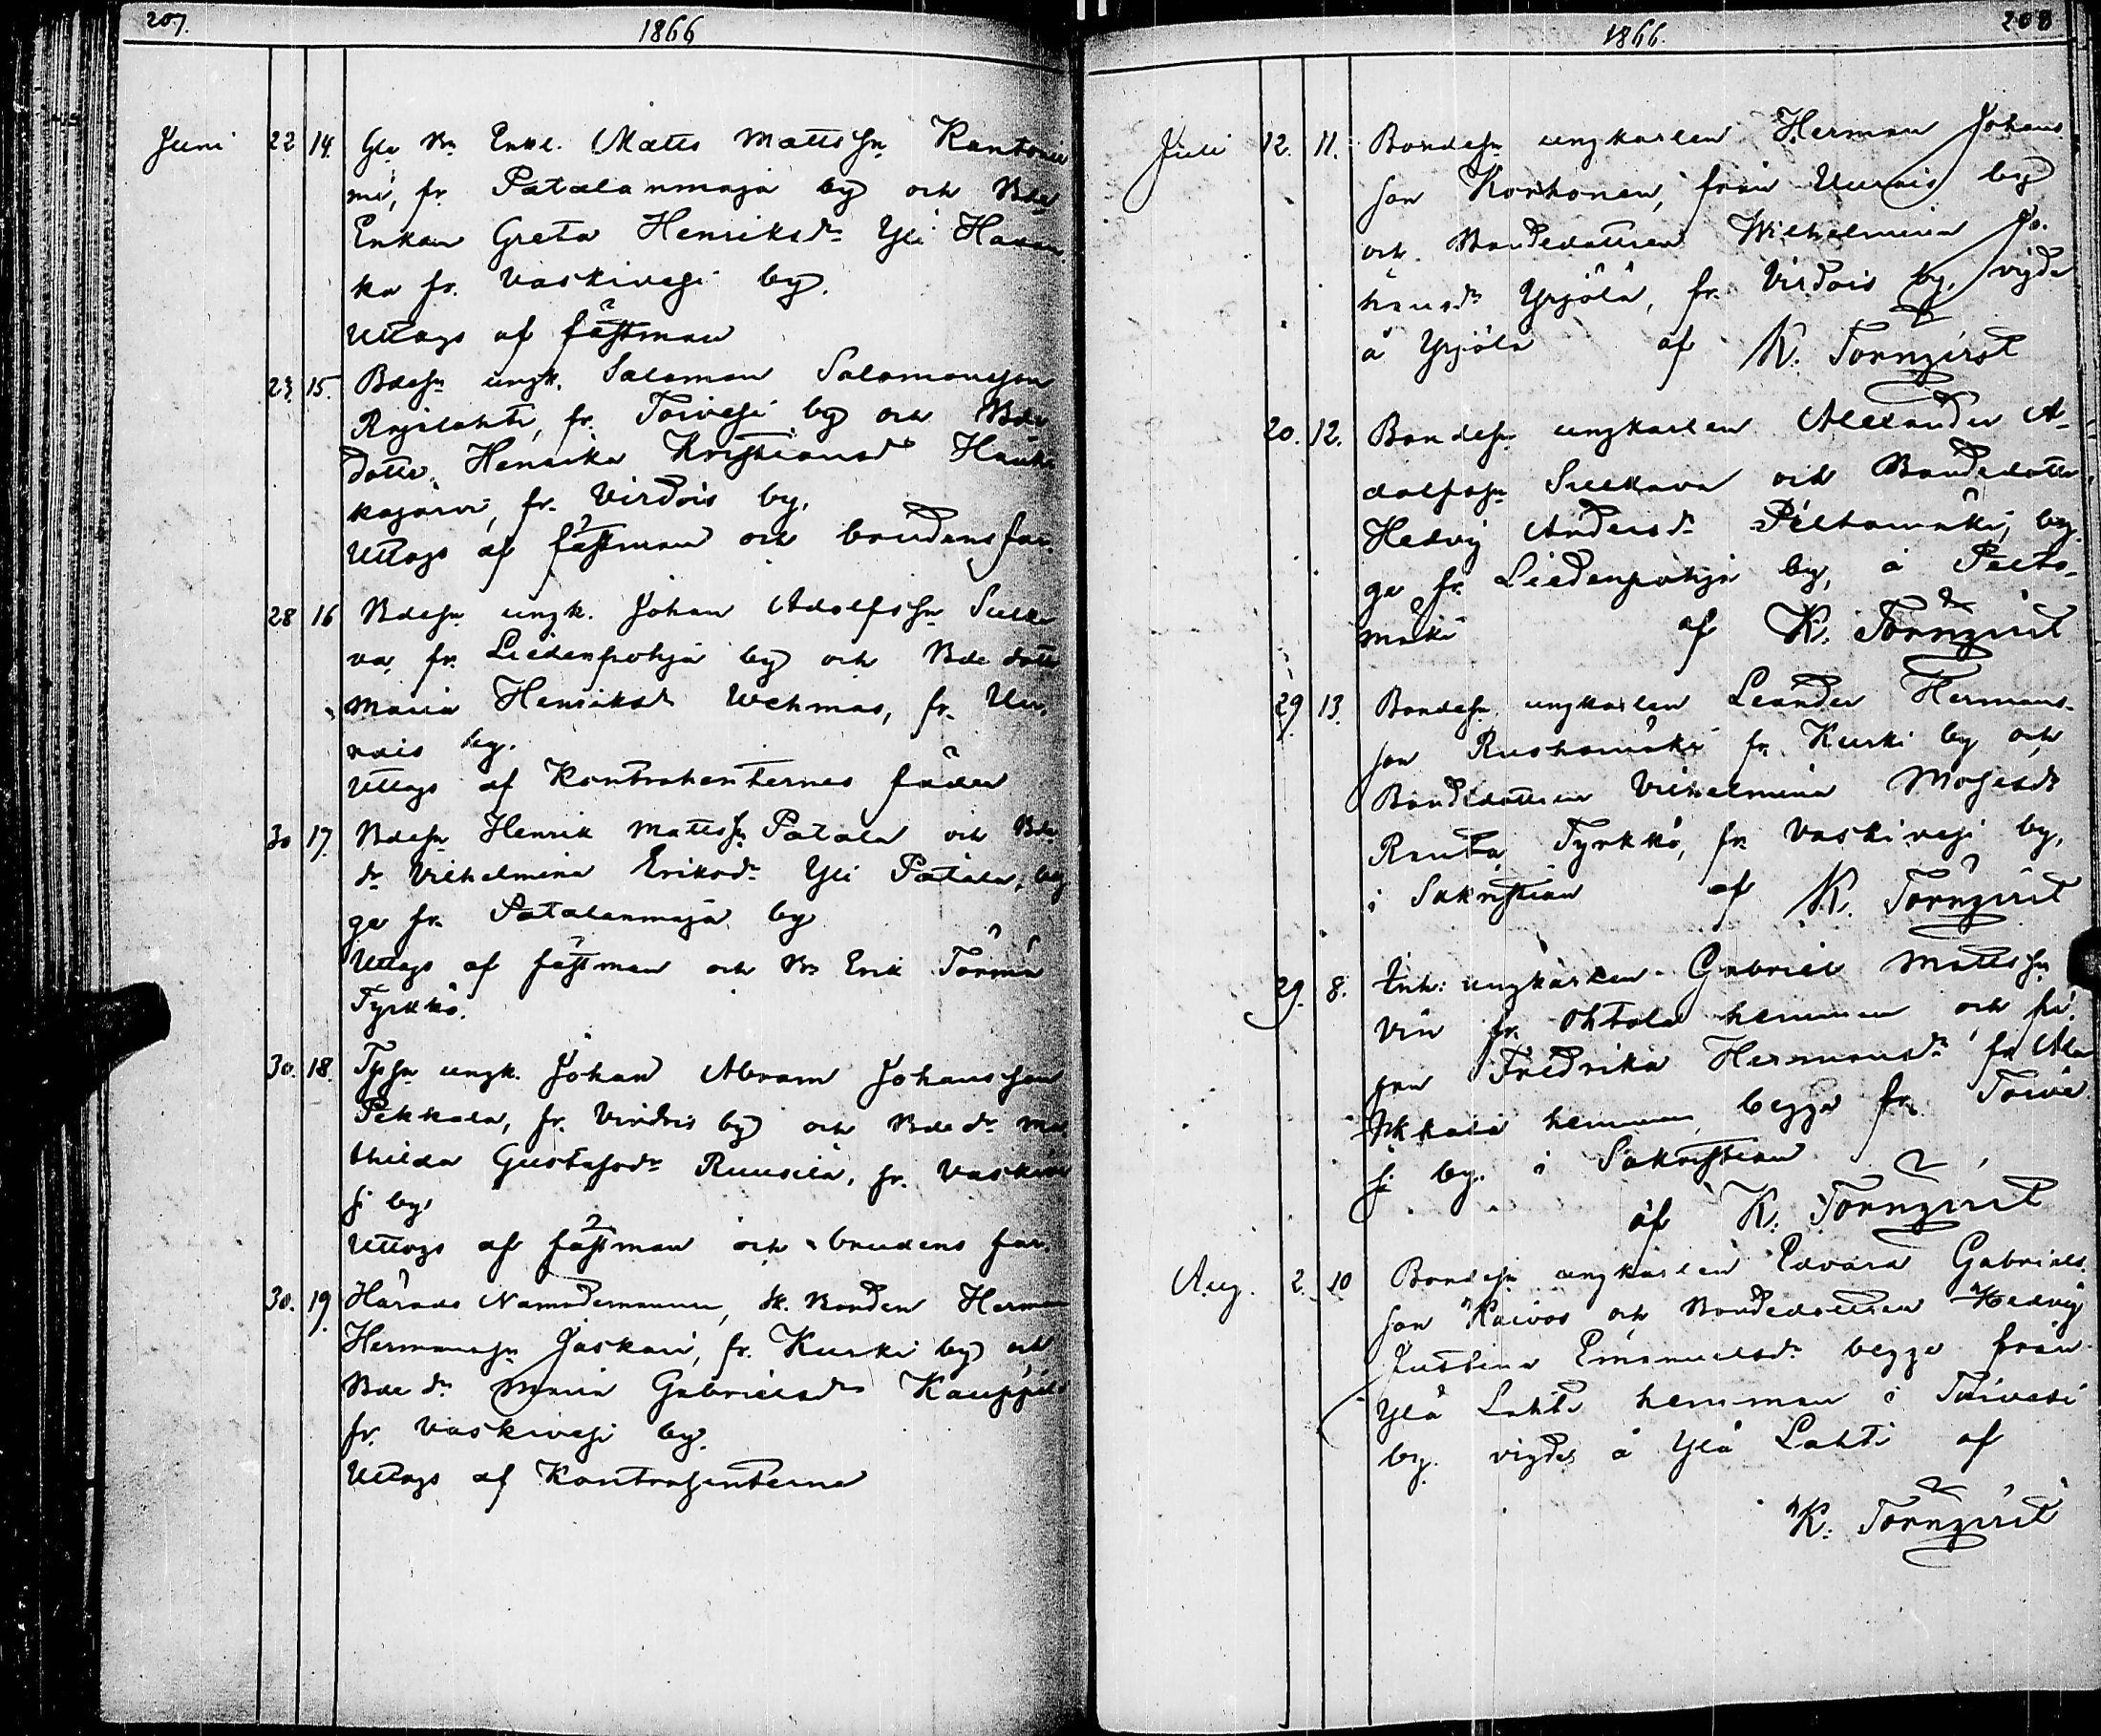 207.
1866
Juni 22 14. Gla Bn Enkl. Matts Mattssn Rantanie
mi, fr. Patalanmaja by och Bde
Enkan Greta Henriksdr Yli Hauan
ka fr. Vaskivesi by.
Uttogs af fästman
23. 15. Bdesn ungk. Salomon Salomonsson
Rajalahti, fr. Toivesi by och Bde
dottr. Henrika Kristiansdr Hauk
kajärvi, fr. Virdois by.
Uttogs af fästman och brudens far.
28 16 Bdesn ungk. Johan Adolfssn Sulka
va, fr. Liedenpohja by och Bde dottr
Maria Henriksdr Wehmas, fr. Uu
rais by.
Uttogs af Kontrahenternes fäder
30 17. Bdesn Henrik Mattssn Patala och Bde
dr Vilhelmina Eriksdr Yli Patala, beg
ge fr. Patalanmaja by
Uttogs af fästman och Bn Erik Törmä
Tyrkkö.
30. 18. Tpsn ungk. Johan Abram Johansson
Pekkala, fr. Virdois by och Bde dr Ma
thilda Gustafsdr Ruusila, fr. Vaskive
si by.
Uttogs af fästman och brudens far.
30. 19. Härads Nämndemannen, Sk. Bonden Herman
Hermanssn Jaskari, fr. Kurki by och
Bde dr Maria Gabrielsdr Kauppila
fr. Vaskivesi by.
Uttogs af Kontrahenterna
208
1866.
Juli 12. 11. Bondesn ungkarlen Herman Johans
son Korhonen, från Uurais by
och Bondedottren Wilhelmina Jo-
hansdr Yrjölä, fr. Virdois by, vigde
å Yrjölä af K. Törnqvist
20. 12. Bondesn ungkarlen Alexander A-
dolfssn Sulkava och Bondedottr.
Hedvig Andersdr Peltomäki, beg
ge fr. Liedenpohja by, å Pelto-
mäki af K. Törnqvist
29 13. Bondesn ungkarlen Leander Hermans-
son Ruohomäki fr. Kurki by och
Bondedottren Vilhelmina Mosesdr
Ranta Tyrkkö, fr. Vaskivesi by,
i Sakristian af K. Törnqvist
29. 8. Inh: ungkarlen Gabriel Mattssn
fr. Ohtola hemman och pi
gan Fredrika Hermansdr fr. Ala
hemman begge fr. Toive
si by. i Sakristian
af K. Törnqvist
Aug. 2. 10 Bondesn ungkarlen Edvard Gabriels
son Raivos och Bondedottren Hedvig
Justina Emanuelsdr begge från
Ylä Lahti hemman i Toivesi
by. vigdes å Ylä Lahti af
K. Törnqvist